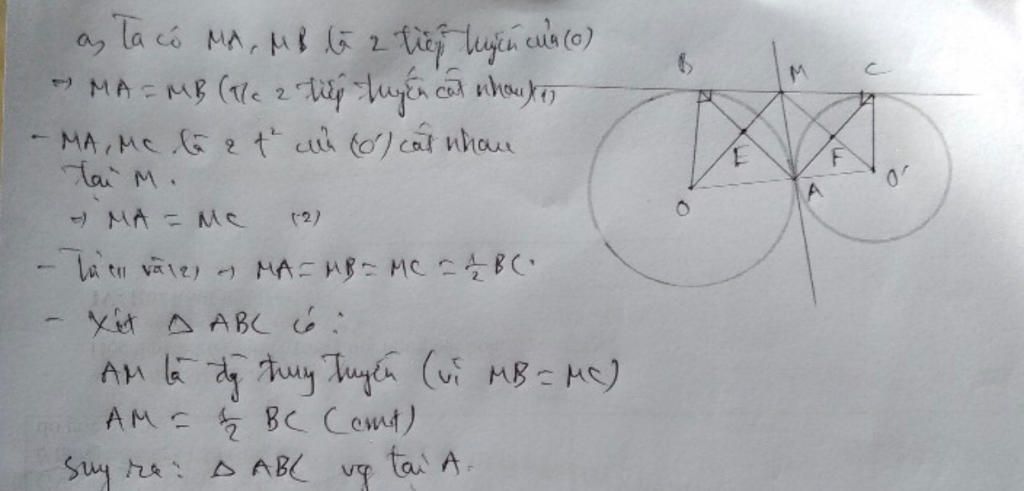 a, Ta có MA, MB là 2 tiếp tuyến của (O)
→ MA = MB (T/c 2 tiếp tuyến cắt nhau) (1)
- MA, MC là 2 t² của (O') cắt nhau
tại M.
→ MA = MC (2)
- Từ (1) và (2) → MA = MB = MC = 1/2 BC.
- Xét △ ABC có:
AM là đg trung tuyến (vì MB = MC)
AM = 1/2 BC (cmt)
Suy ra: △ ABC vg tại A.
B M C
E F
O A O'